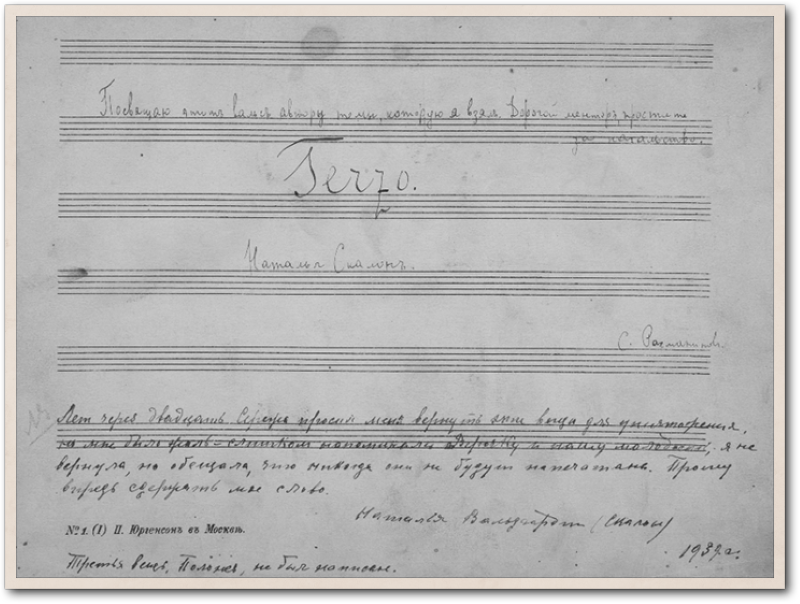 Посвящаю этотъ вальсъ автору темы, которую я взялъ. Дорогой менторъ, простите
за нахальство.
Наталья Скалонъ.
С. Рахманиновъ.
Лет через двадцать Сережа просил меня вернуть эти вещи для уничтожения,
но мне было жаль – слишком напоминали и нашу молодость, я не
вернула, но обещала, что никогда они не будут напечатаны. Прошу
сдержать мне слово.
Наталья Вальдгардт (Скалон)
№ 1. (1) П. Юргенсонъ въ Москвѣ.
Третья вещь, не был написан.